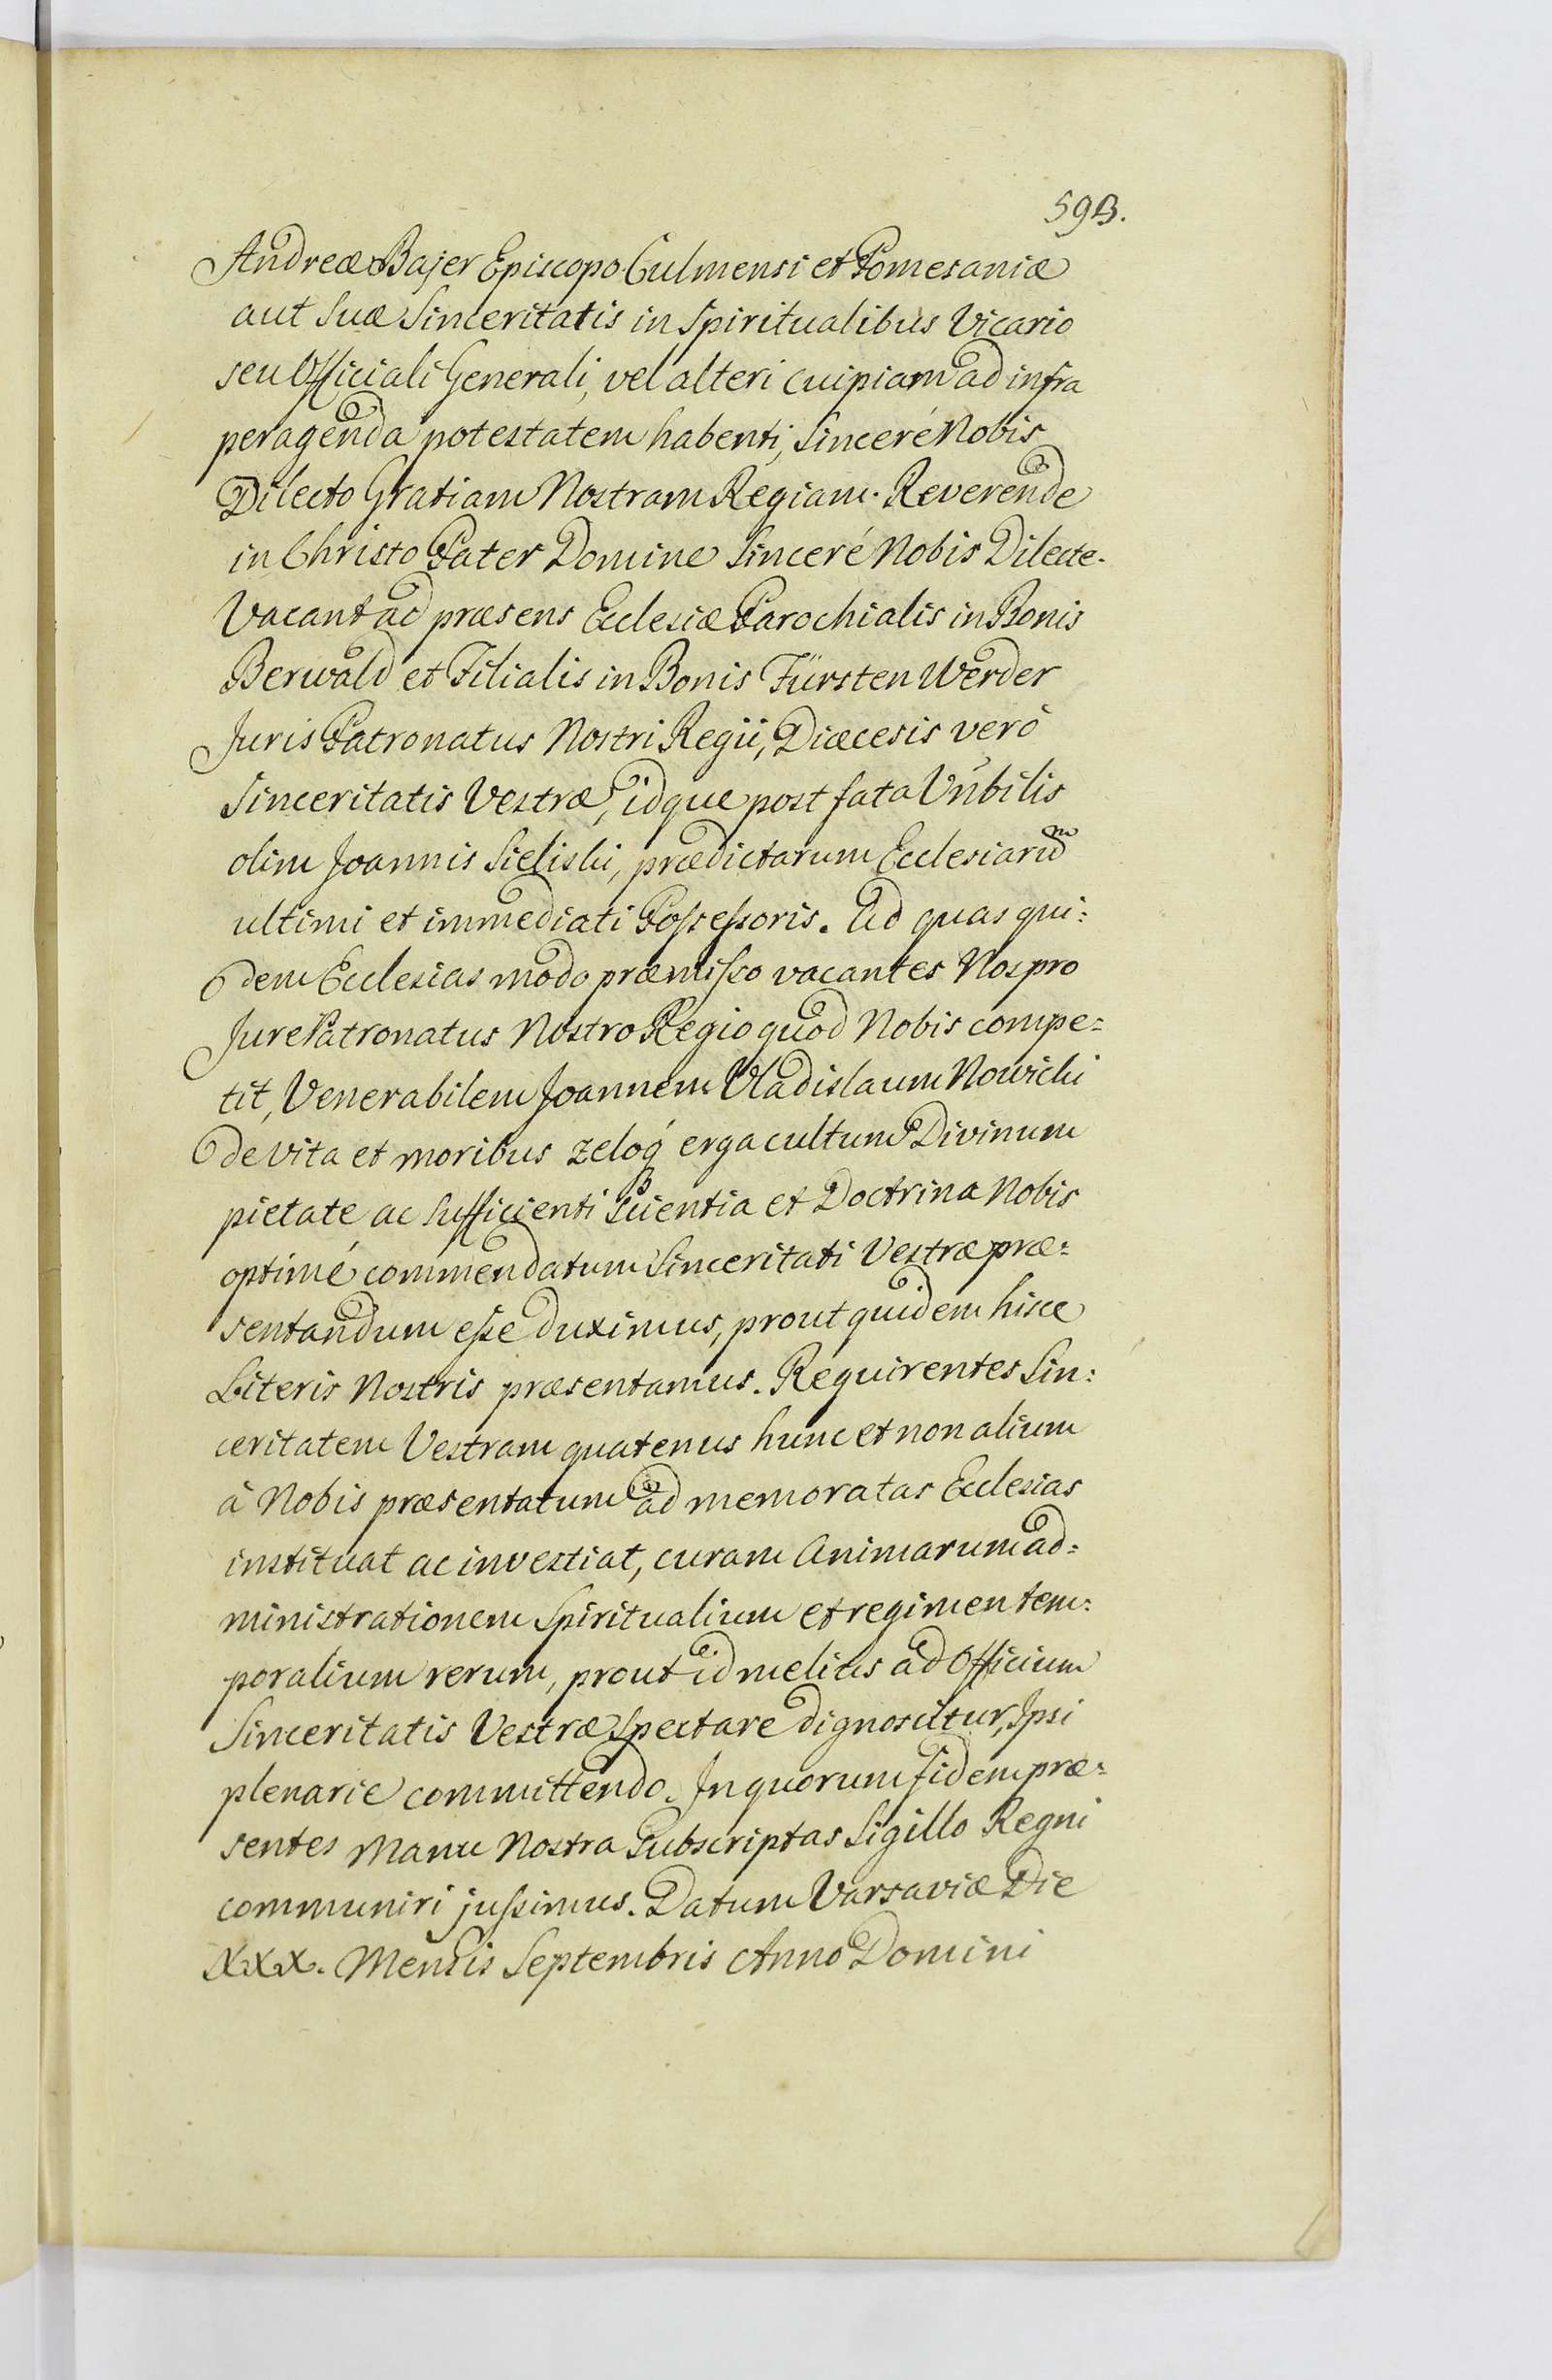 593.
Andreæ Bajer Episcopo Culmensi et Pomesaniæ
aut Suæ Sinceritatis in Spiritualibus Vicario
seu Officiali Generali, vel alteri cuipiam ad infra
peragenda potestatem habenti, Sinceré Nobis
Dilecto Gratiam Nostram Regiam. Reverende
in Christo Pater Domine Sinceré Nobis Dilecte.
Vacant ad præsens Ecclesiæ Parochialis in Bonis
Berwald et Filialis in Bonis Fürsten Werder
Juris Patronatus Nostri Regii, Diæcesis verò
Sinceritatis Vestræ, idque post fata Vnbilis
olim Joannis Sielski, prædictarum Ecclesiarũm
ultimi et immediati Possessoris. Ad quas qui:
dem Ecclesias modo præmisso vacantes Nos pro
Jure Patronatus Nostro Regio quod Nobis compe=
tit, Venerabilem Joannem Vladislaum Nowicki
de vita et moribus zeloq́ erga cultum Divinum
pietate ac sufficienti Scientia et Doctrina Nobis
optimé commendatum Sinceritati Vestræ præ:
sentandum esse duximus, prout quidem hisce
Literis Nostris præsentamus. Requirentes Sin:
ceritatem Vestram quatenus hunc et non alium
à Nobis præsentatum ad memoratas Ecclesias
instituat ac investiat, curam Animarum ad=
ministrationem Spiritualium et regimen tem:
poralium rerum, prout id melius ad Officium
Sinceritatis Vestræ Spectare dignoscitur, Ipsi
plenarie committendo. In quorum fidem præ:
sentes Manu Nostra Subscriptas Sigillo Regni
communiri jussimus. Datum Varsaviæ Die
XXX. Mensis Septembris Anno Domini